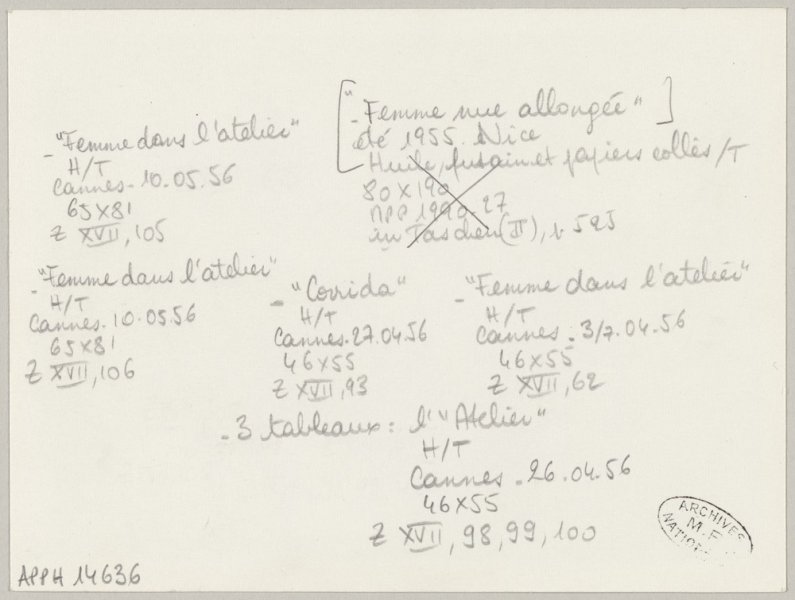 - "Femme dans l'atelier"
H/T
Cannes - 10.05.56
65 x 81
Z XVII, 105
["- Femme nue allongée"]
été 1955. Nice
Huile, fusain et papiers collés /T
80 x 190
MPP 1990-27
in Taschen (II), p 525
- "Femme dans l'atelier"
H/T
Cannes. 10.05.56
65 x 81
Z XVII, 106
- "Corrida"
H/T
Cannes. 27.04.56
46 x 55
Z XVII, 93
- "Femme dans l'atelier"
H/T
Cannes - 3/7.04.56
46 x 55
Z XVII, 62
- 3 tableaux : l'"Atelier"
H/T
Cannes - 26.04.56
46 x 55
Z XVII, 98, 99, 100
ARCHIVES
M.P.
APPH 14636